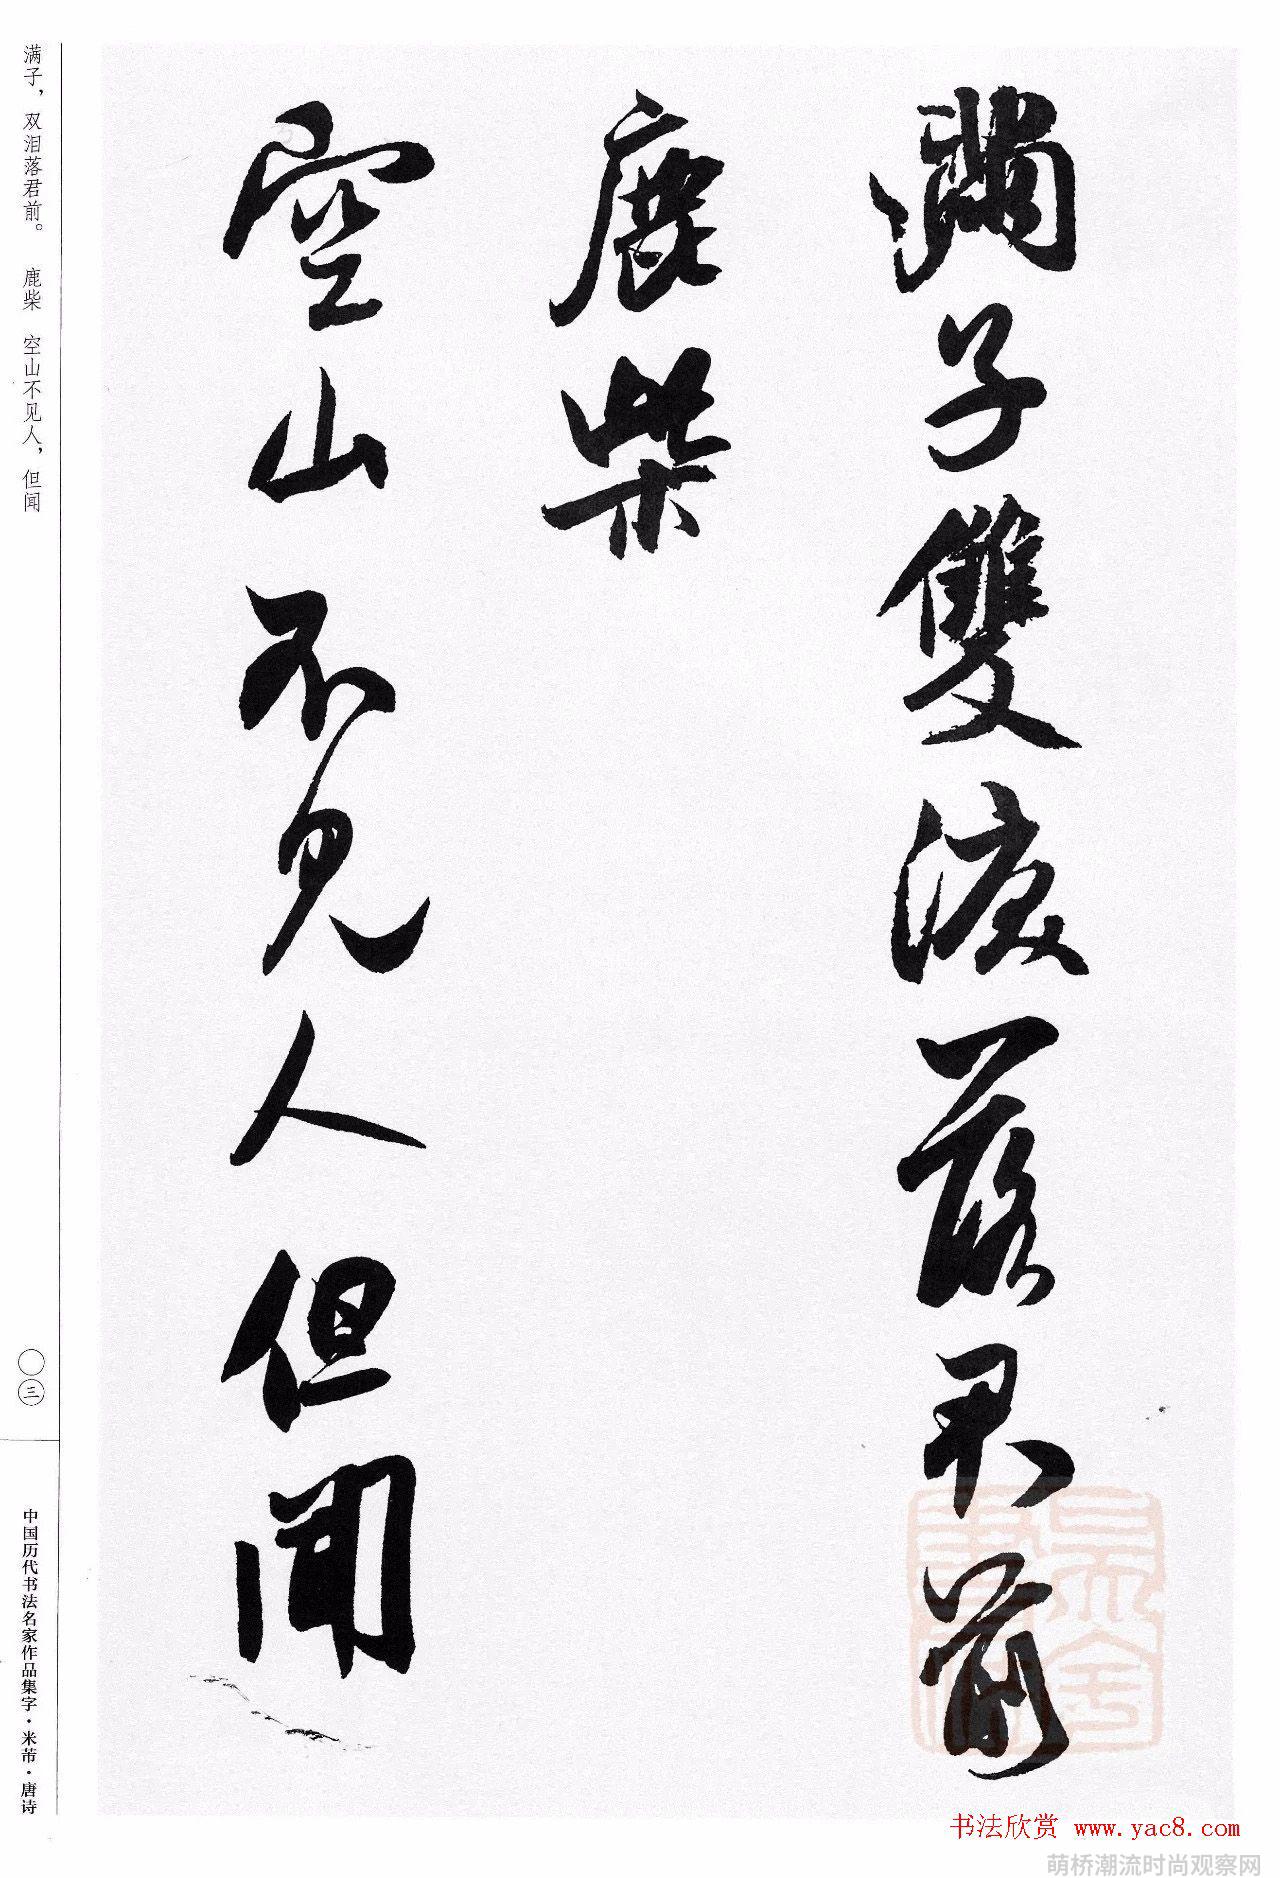 满子雙淚落君前
鹿柴
空山不見人但聞
满子，双泪落君前。 鹿柴 空山不见人，但闻
〇三
中国历代书法名家作品集字·米芾·唐诗
书法欣赏 www.yac8.com
萌桥潮流时尚观察网